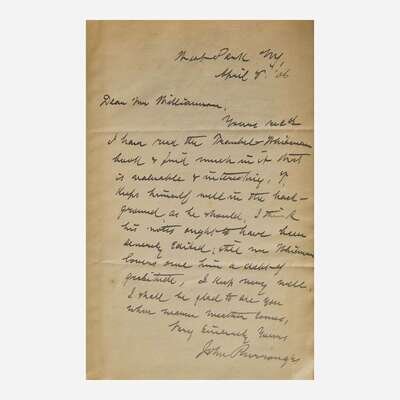 West Park NY
April 8, '06
Dear Mr Williamson,
Yours recd
I have read the Traubel-Whitman
book & find much in it that
is valuable & interesting. T,
keeps himself well in the back-
ground, as he should, I think
his notes ought to have been
severely edited; still we Whitman
lovers owe him a debt of
gratitude. I keep very well.
I shall be glad to see you
when warm weather comes,
Very Sincerely Yours
John Burroughs